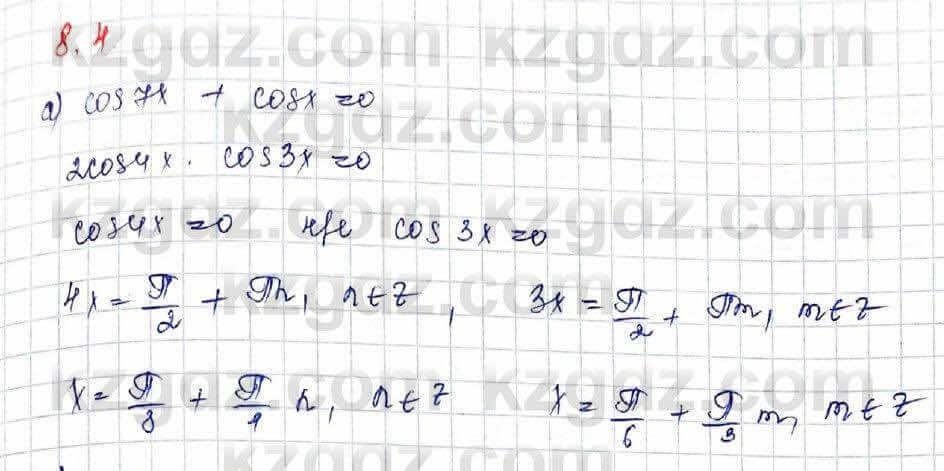 8.4
kzgdz.com kzgdz.com
а) cos7x + cosx = 0
kzgdz.com
2cos4x · cos3x = 0
kzgdz.com kzgdz.com
cos4x = 0 нче cos 3x = 0
kzgdz.com
4x = π/2 + πn, n ∈ Z, 3x = π/2 + πm, m ∈ Z
kzgdz.com kzgdz.com
x = π/8 + π/4 n, n ∈ Z x = π/6 + π/3 m, m ∈ Z
kzgdz.com